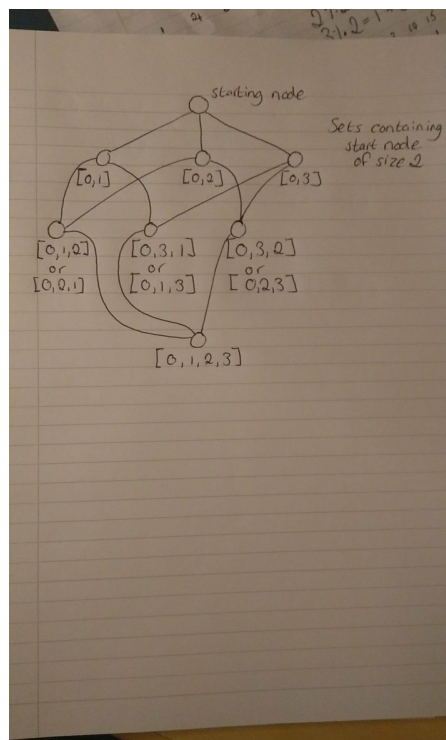 starting node
Sets containing
start node
of size 2
[0,1]
[0,2]
[0,3]
[0,1,2]
or
[0,2,1]
[0,3,1]
or
[0,1,3]
[0,3,2]
or
[0,2,3]
[0,1,2,3]